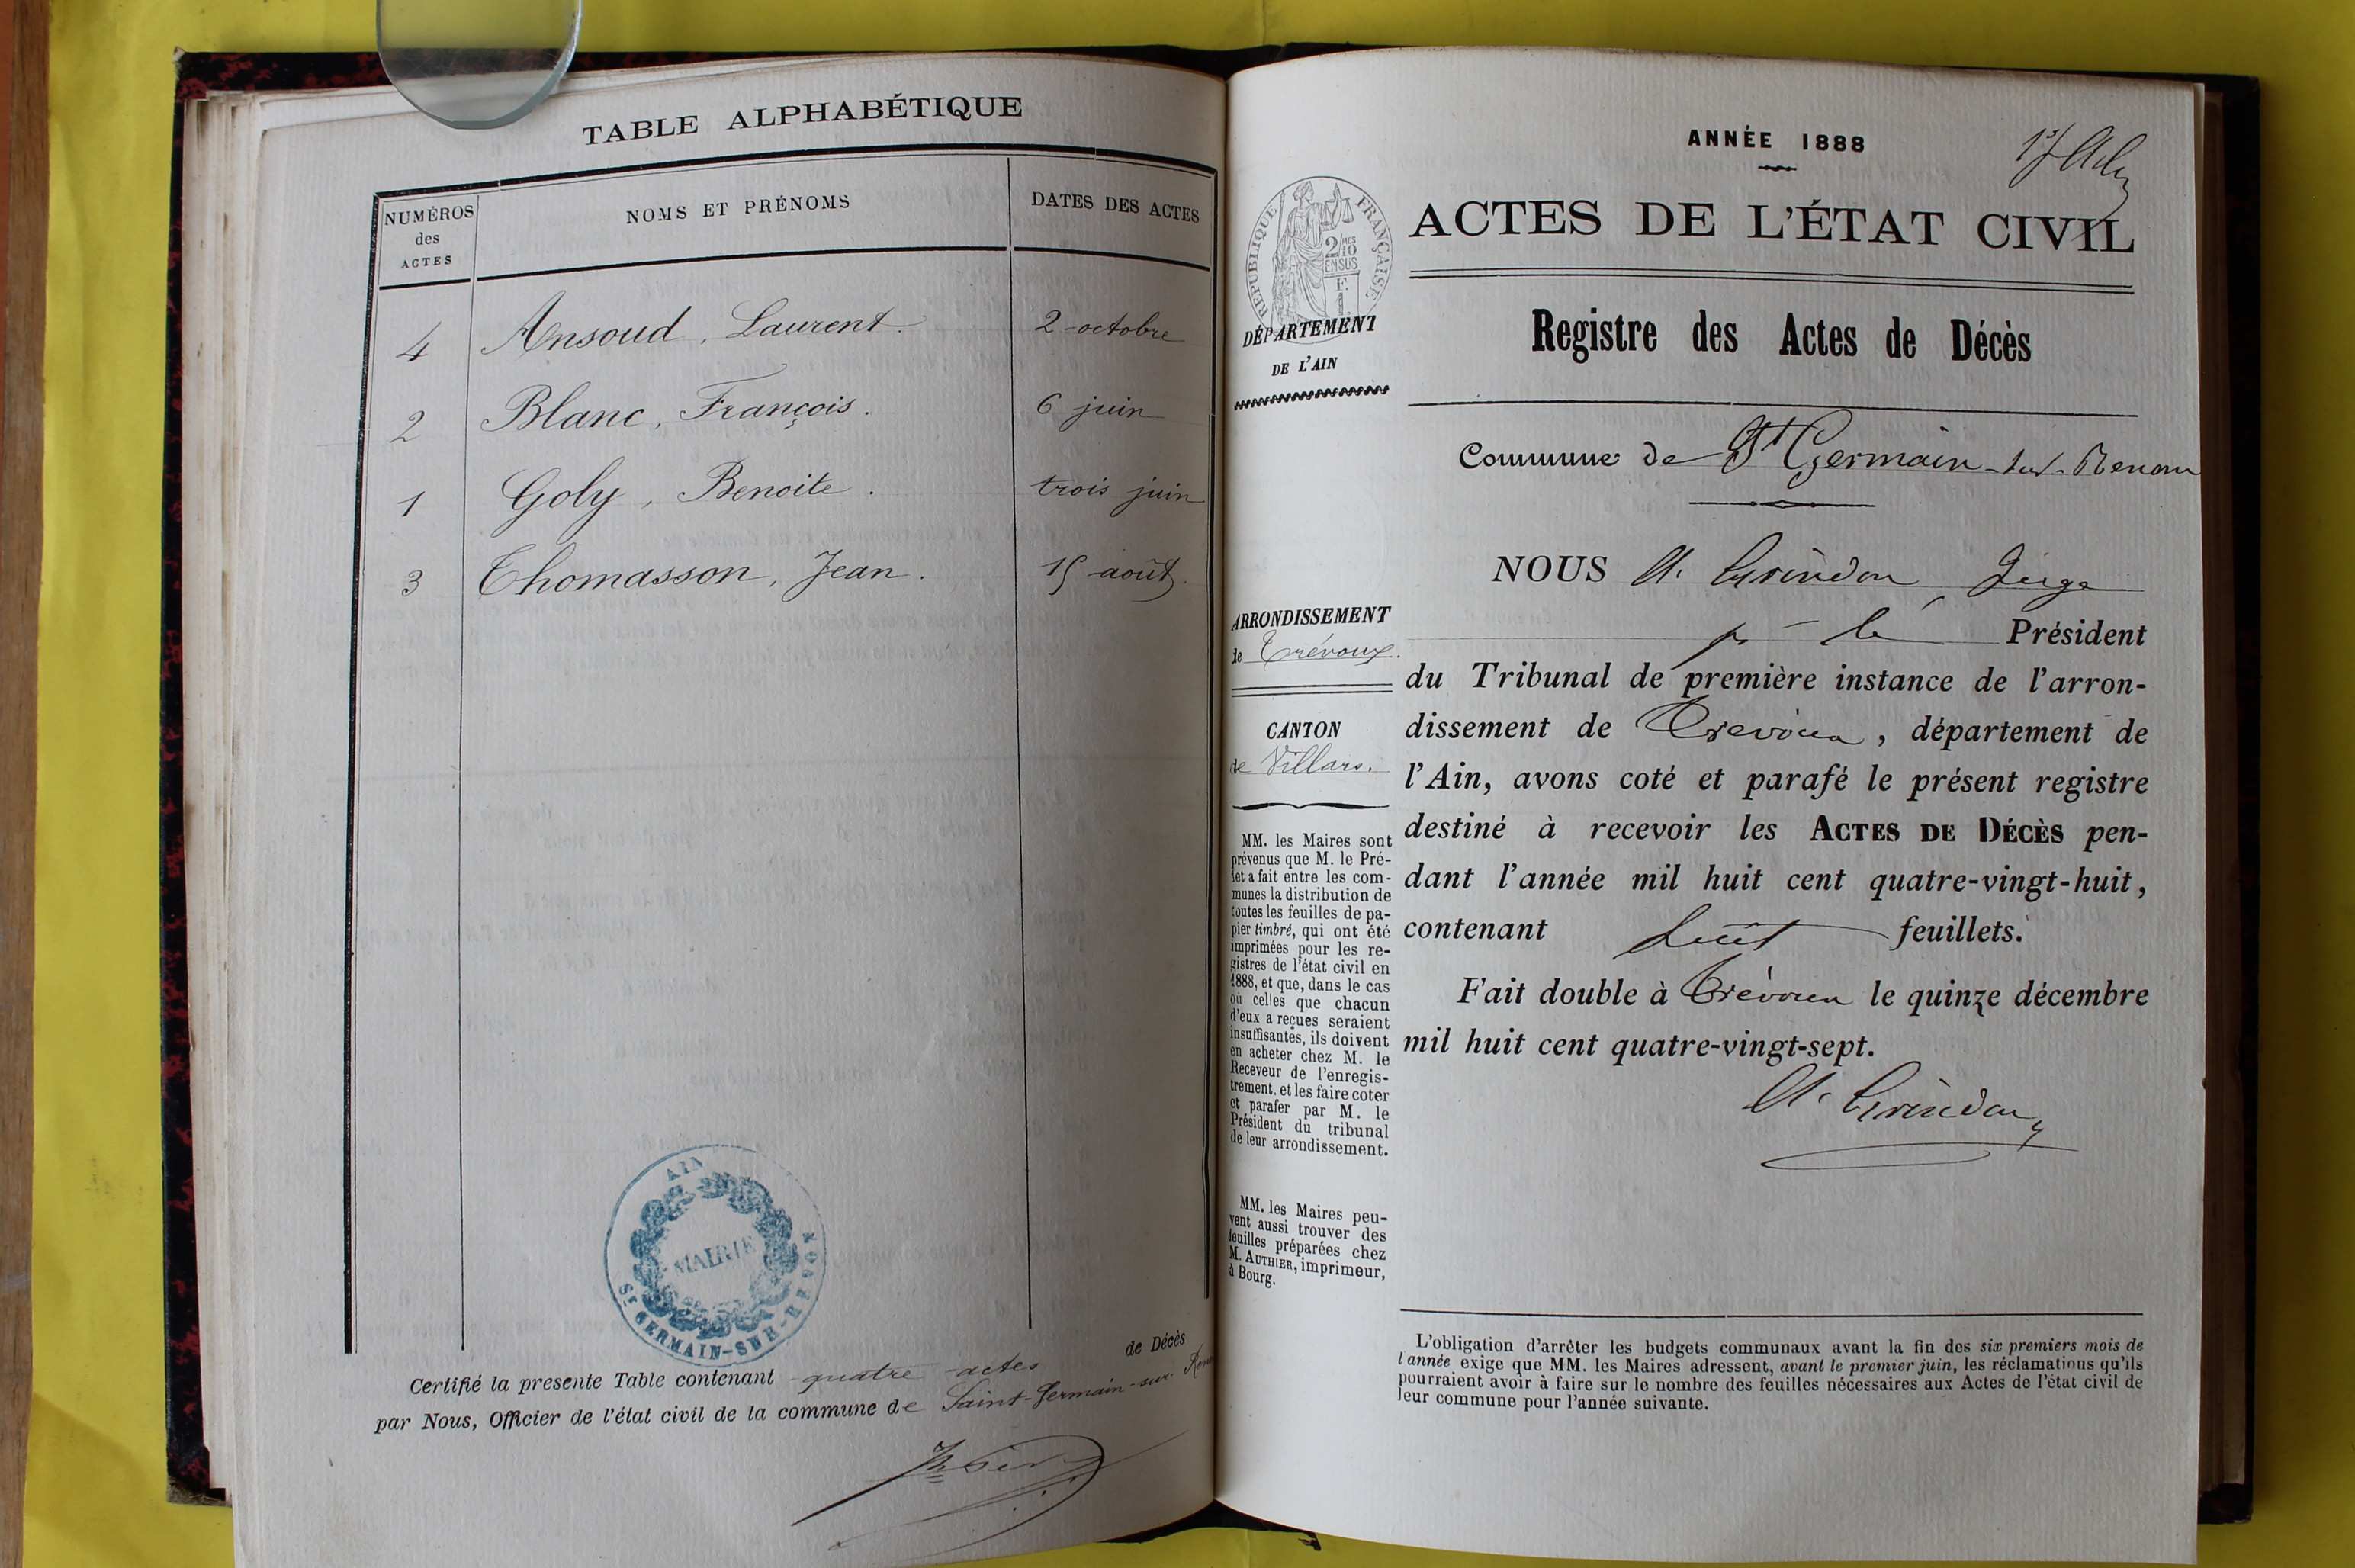 TABLE ALPHABÉTIQUE
NUMÉROS
des
ACTES
NOMS ET PRÉNOMS
DATES DES ACTES
4 Ansoud, Laurent. 2 octobre
2 Blanc, François. 6 juin
1 Goly, Benoite. trois juin
3 Thomasson, Jean. 15 août.
AIN
MAIRIE
St GERMAIN-SUR-RENON
Certifié la presente Table contenant quatre actes de Décès
par Nous, Officier de l'état civil de la commune de Saint-Germain-sur-
ANNÉE 1888
ACTES DE L'ÉTAT CIVIL
RÉPUBLIQUE FRANÇAISE
2 MES
10
EN SUS
F.
1
DÉPARTEMENT
DE L'AIN
Registre des Actes de Décès
Commune de St Germain-sur-Renom
ARRONDISSEMENT
de Trévoux.
CANTON
de Villars.
MM. les Maires sont
prévenus que M. le Pré-
fet a fait entre les com-
munes la distribution de
toutes les feuilles de pa-
pier timbré, qui ont été
imprimées pour les re-
gistres de l'état civil en
1888, et que, dans le cas
où celles que chacun
d'eux a reçues seraient
insuffisantes, ils doivent
en acheter chez M. le
Receveur de l'enregis-
trement. et les faire coter
et parafer par M. le
Président du tribunal
de leur arrondissement.
MM. les Maires peu-
vent aussi trouver des
feuilles préparées chez
M. AUTHIER, imprimeur,
à Bourg.
NOUS A. Grindon, Juge
pr le Président
du Tribunal de première instance de l'arron-
dissement de Trevoux, département de
l'Ain, avons coté et parafé le présent registre
destiné à recevoir les ACTES DE DÉCÈS pen-
dant l'année mil huit cent quatre-vingt-huit,
contenant huit feuillets.
Fait double à Trévoux le quinze décembre
mil huit cent quatre-vingt-sept.
A. Grindon
L'obligation d'arrêter les budgets communaux avant la fin des six premiers mois de
l'année exige que MM. les Maires adressent, avant le premier juin, les réclamations qu'ils
pourraient avoir à faire sur le nombre des feuilles nécessaires aux Actes de l'état civil de
leur commune pour l'année suivante.